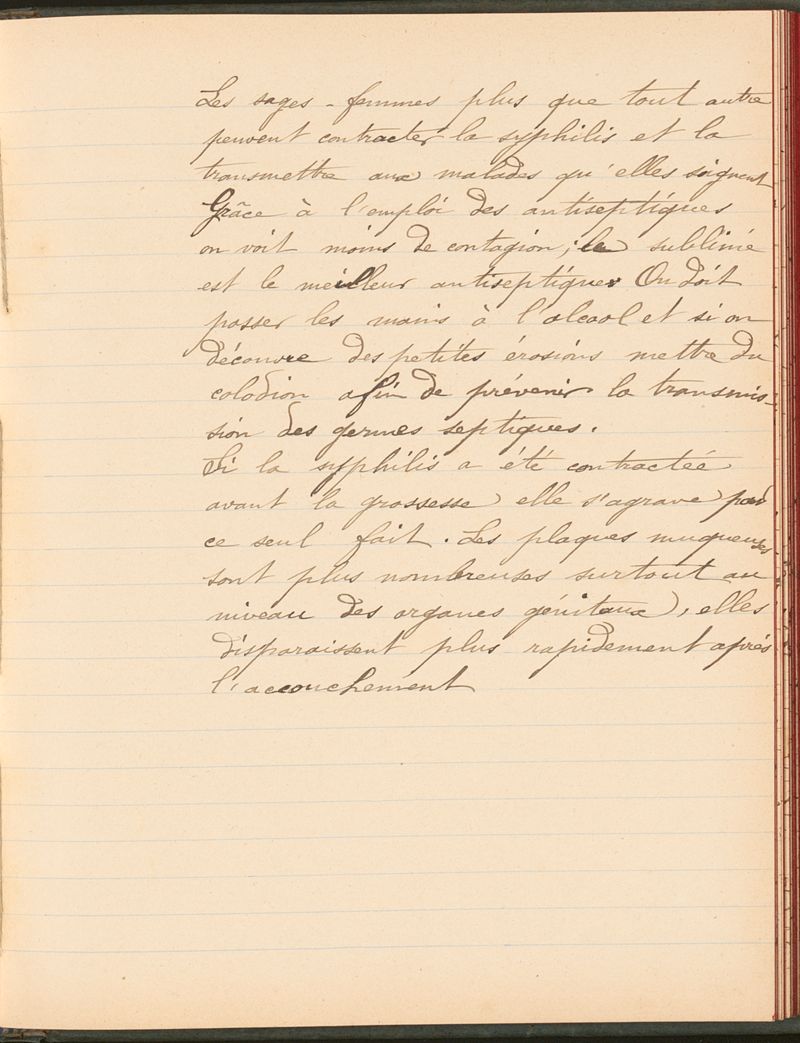 Les sages-femmes plus que tout autre
peuvent contracter la syphilis et la
transmettre aux malades qu'elles soignent
Grâce à l'emploi des antiseptiques
on voit moins de contagion, le sublimé
est le meilleur antiseptique. On doit
passer les mains à l'alcool et si on
découvre des petites érosions mettre du
colodion afin de prévenir la transmis-
sion des germes septiques.
Si la syphilis a été contractée
avant la grossesse elle s'agrave par
ce seul fait. Les plaques muqueuses
sont plus nombreuses surtout au
niveau des organes génitaux, elles
disparaissent plus rapidement après
l'accouchement